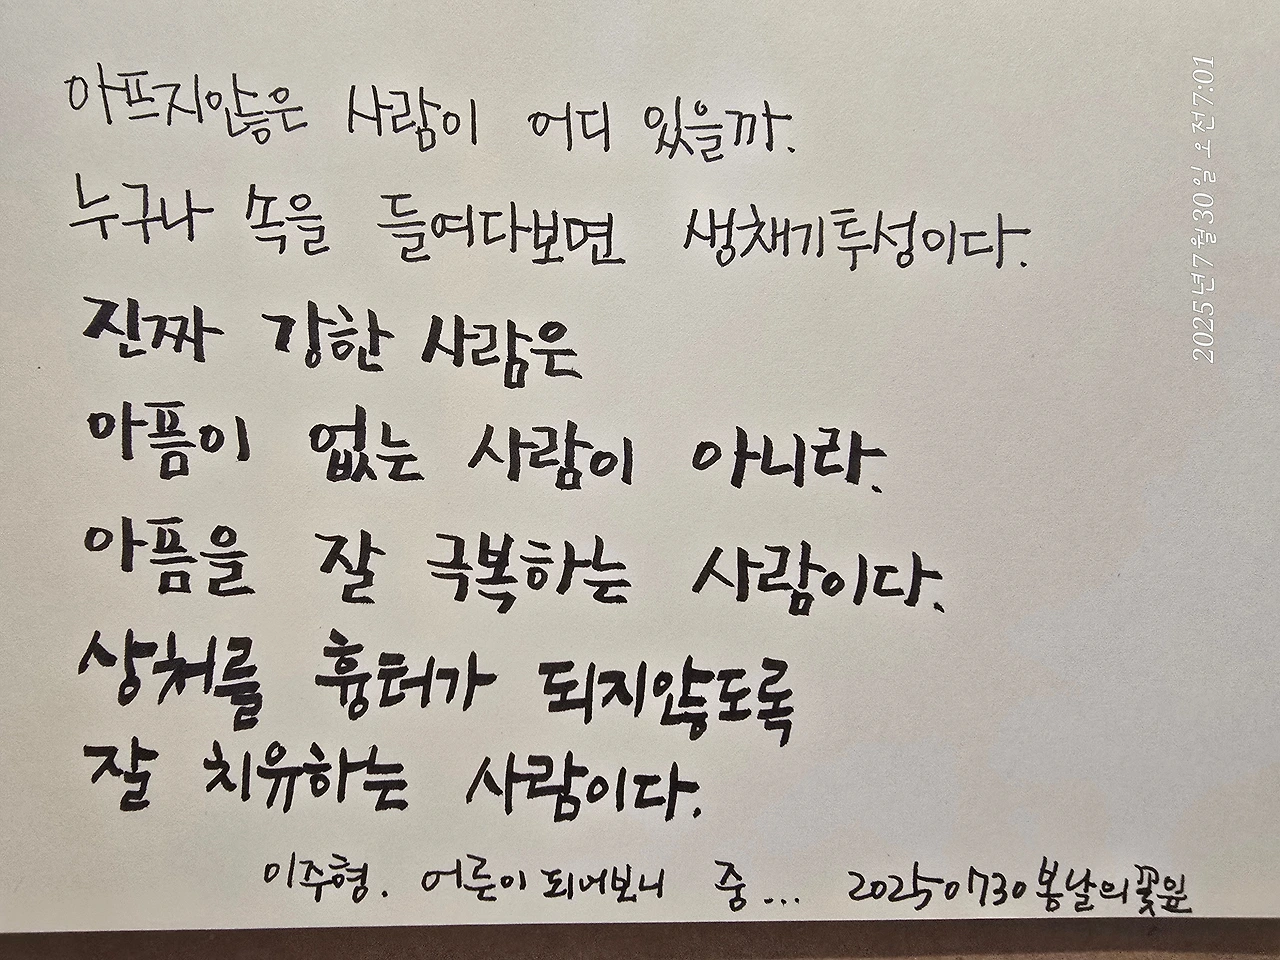 아프지않은 사람이 어디 있을까.
누구나 속을 들여다보면 생채기투성이다.
진짜 강한 사람은
아픔이 없는 사람이 아니라.
아픔을 잘 극복하는 사람이다.
상처를 흉터가 되지않도록
잘 치유하는 사람이다.
이주형. 어른이 되어보니 중... 20250730 봄날의꽃잎
2025년 7월 30일 오전 7:01